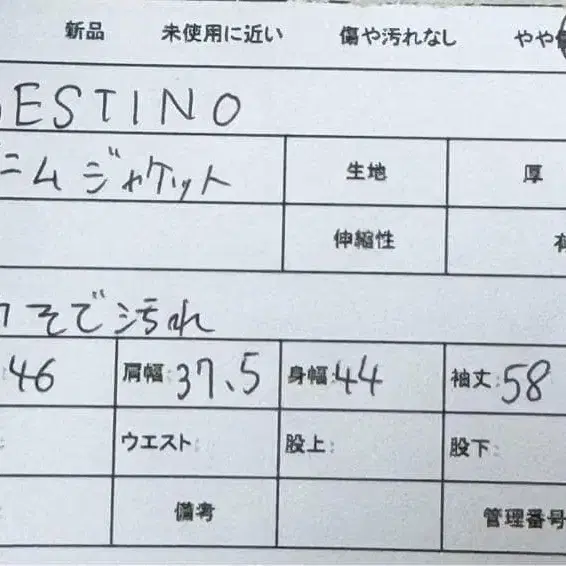 新品 未使用に近い 傷や汚れなし やや
ESTINO
ニム ジャケット 生地 厚
伸縮性 有
そで 汚れ
46 肩幅: 37.5 身幅: 44 袖丈: 58
ウエスト: 股上: 股下:
備考 管理番号